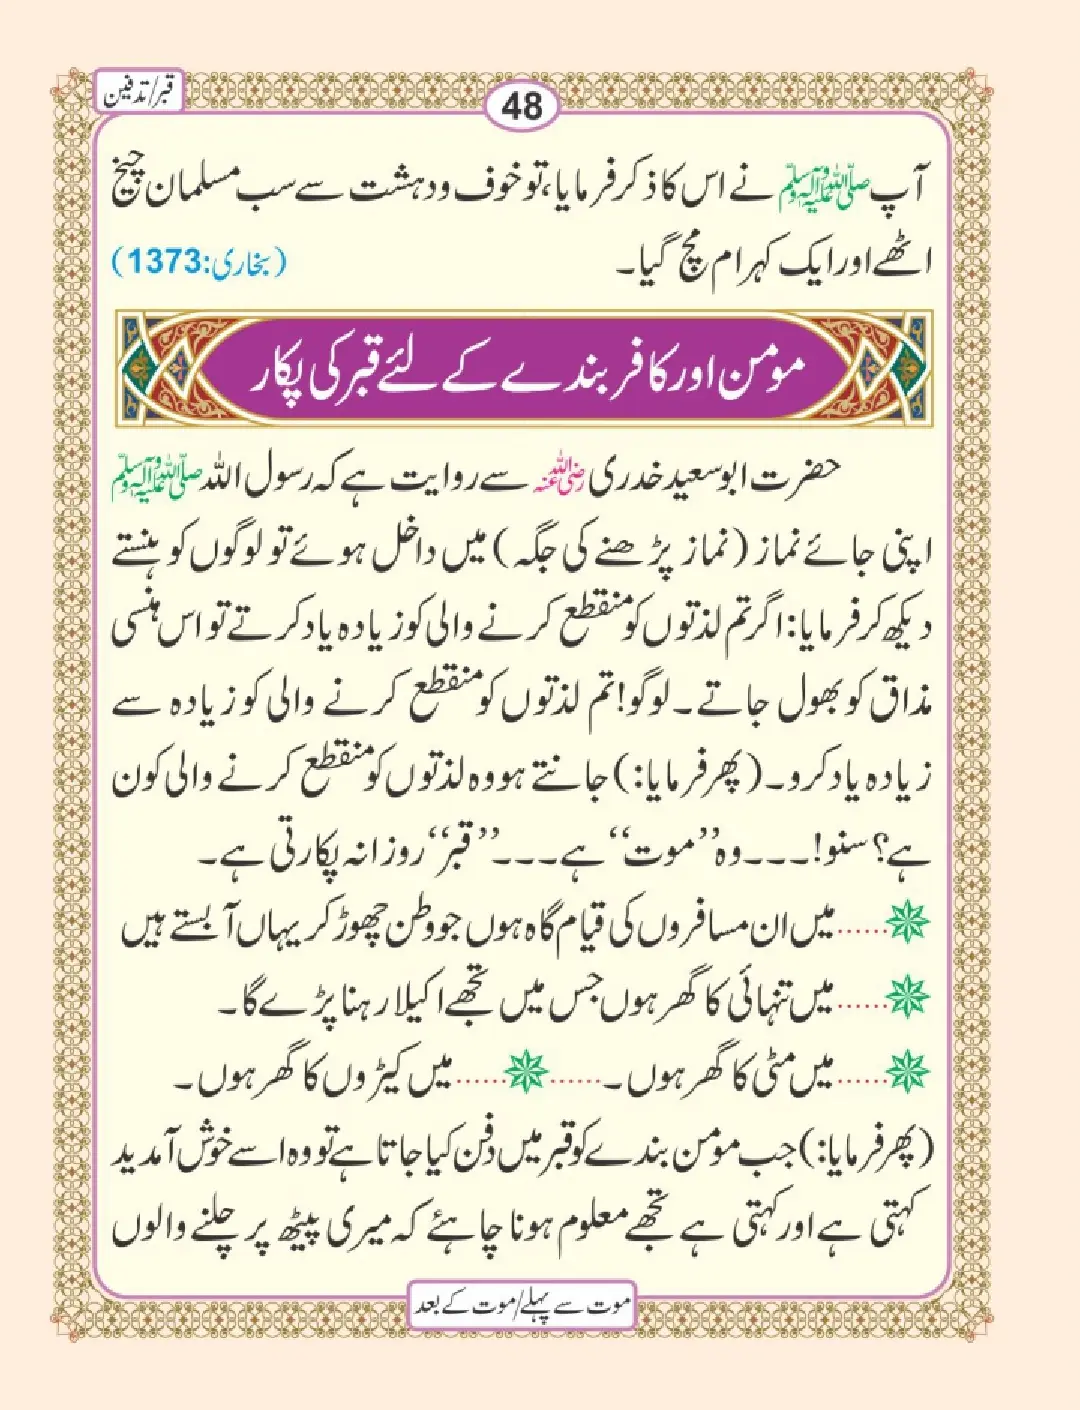 قبر/تدفین
48
آپ ﷺ نے اس کا ذکر فرمایا، تو خوف و دہشت سے سب مسلمان چیخ
اٹھے اور ایک کہرام مچ گیا۔ (بخاری: 1373)
مومن اور کافر بندے کے لئے قبر کی پکار
حضرت ابوسعید خدری رضی اللہ عنہ سے روایت ہے کہ رسول اللہ ﷺ
اپنی جائے نماز (نماز پڑھنے کی جگہ) میں داخل ہوئے تو لوگوں کو ہنستے
دیکھ کر فرمایا: اگر تم لذتوں کو منقطع کرنے والی کو زیادہ یاد کرتے تو اس ہنسی
مذاق کو بھول جاتے۔ لوگو! تم لذتوں کو منقطع کرنے والی کو زیادہ سے
زیادہ یاد کرو۔ (پھر فرمایا:) جانتے ہو وہ لذتوں کو منقطع کرنے والی کون
ہے؟ سنو!۔۔۔ وہ ’’موت‘‘ ہے۔۔۔ ’’قبر‘‘ روزانہ پکارتی ہے۔
......میں ان مسافروں کی قیام گاہ ہوں جو وطن چھوڑ کر یہاں آ بستے ہیں
......میں تنہائی کا گھر ہوں جس میں تجھے اکیلا رہنا پڑے گا۔
......میں مٹی کا گھر ہوں۔ ...... ......میں کیڑوں کا گھر ہوں۔
(پھر فرمایا:) جب مومن بندے کو قبر میں دفن کیا جاتا ہے تو وہ اسے خوش آمدید
کہتی ہے اور کہتی ہے تجھے معلوم ہونا چاہئے کہ میری پیٹھ پر چلنے والوں
موت سے پہلے/موت کے بعد